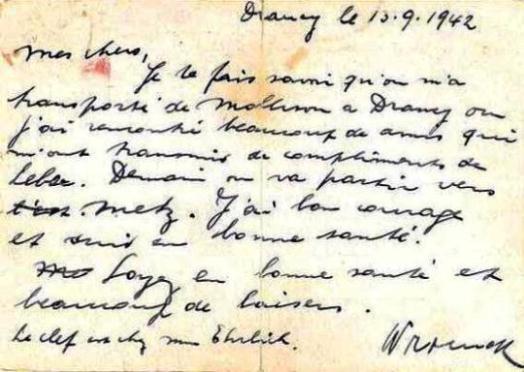 Drancy le 13.9.1942
Mes chers,
Je te fais savoir qu'on m'a
transporté de à Drancy ou
j'ai rencontré beaucoup de amis qui
m'ont transmis de compliments de
Demain on va partir vers
Metz. J'ai bon courage
et suis en bonne santé.
Soyez en bonne santé et
beaucoup de baisers.
La clef est chez Ehrlich.